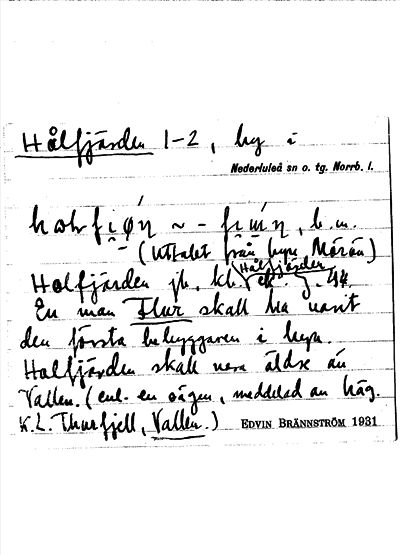 Hålfjärden 1-2, by i
Nederluleå sn o. tg. Norrb. l.
(Uttalet från byn Mörön)
Hålfjärden
Halfjärden jb. kl. 44.
En man Flur skall ha varit
den första bebyggaren i byn.
Halfjärden skall vara äldre än
Vallen. (enl. en sägen, meddelad av häg.
K.L. Thurfjell, Vallen.) EDVIN BRÄNNSTRÖM 1931